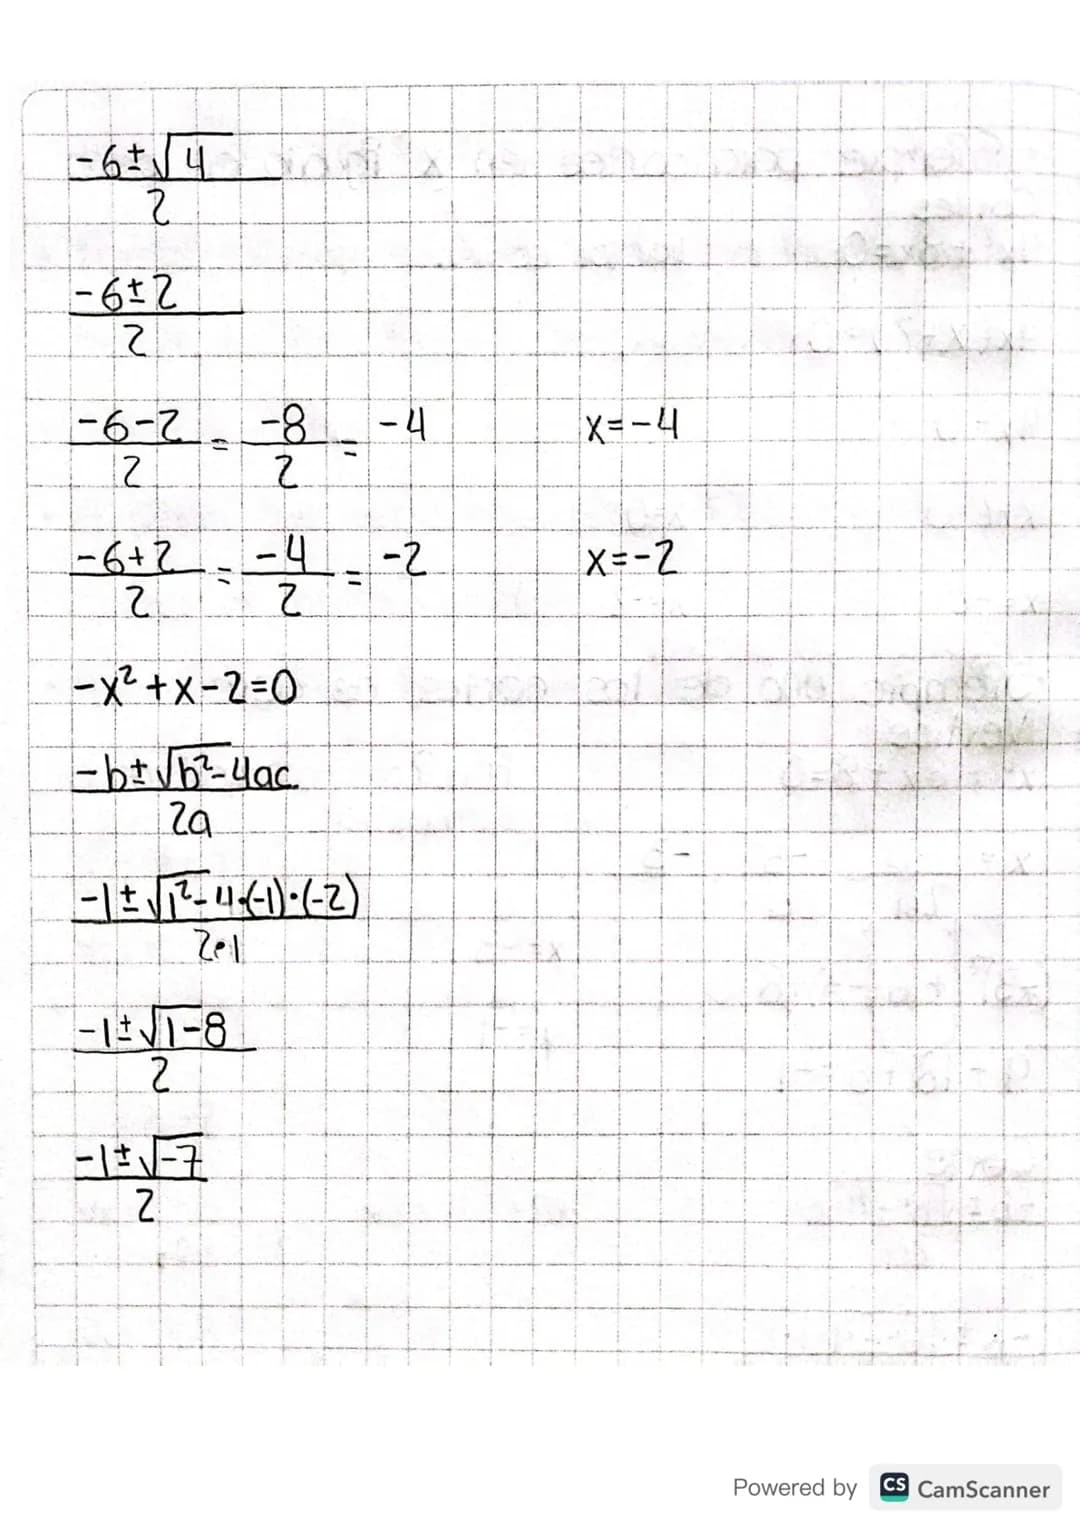 -6±√4
2
-6±2
2
-6-2 = -8 = -4 x=-4
2 2
-6+2 = -4 = -2 x=-2
2 2
-x²+x-2=0
-b±√b²-4ac
2a
-1±√1²-4·(-1)·(-2)
2·1
-1±√1-8
2
-1±√-7
2
Powered by CS CamScanner